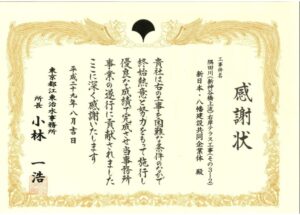 感謝状
工事件名
隅田川(新神谷橋上流)右岸テラス工事(その3)
新日本・八幡建設共同企業体 殿
貴社は右の工事を困難な条件のなかで
終始熱意と努力をもって施行し
優良な成績で完成させ当事務所
事業の遂行に貢献されました
ここに深く感謝いたします
平成二十九年 八月吉日
東京都江東治水事務所
所長 小林 一浩